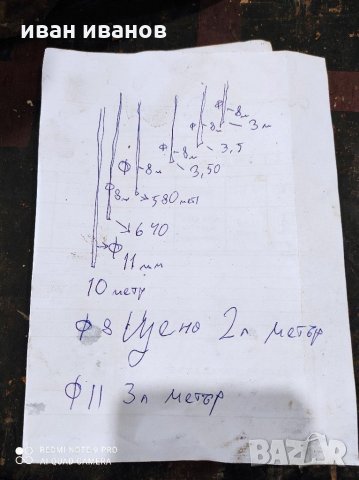 иван иванов
ф 8м
3м
ф 8м
3,5
ф 8м
3,50
ф 8м
580 мм
ф 8м
640
ф 11 мм
10 метр
ф 8 Цена 2л метър
ф 11 3л метър
REDMI NOTE 9 PRO
AI QUAD CAMERA
BAZAR